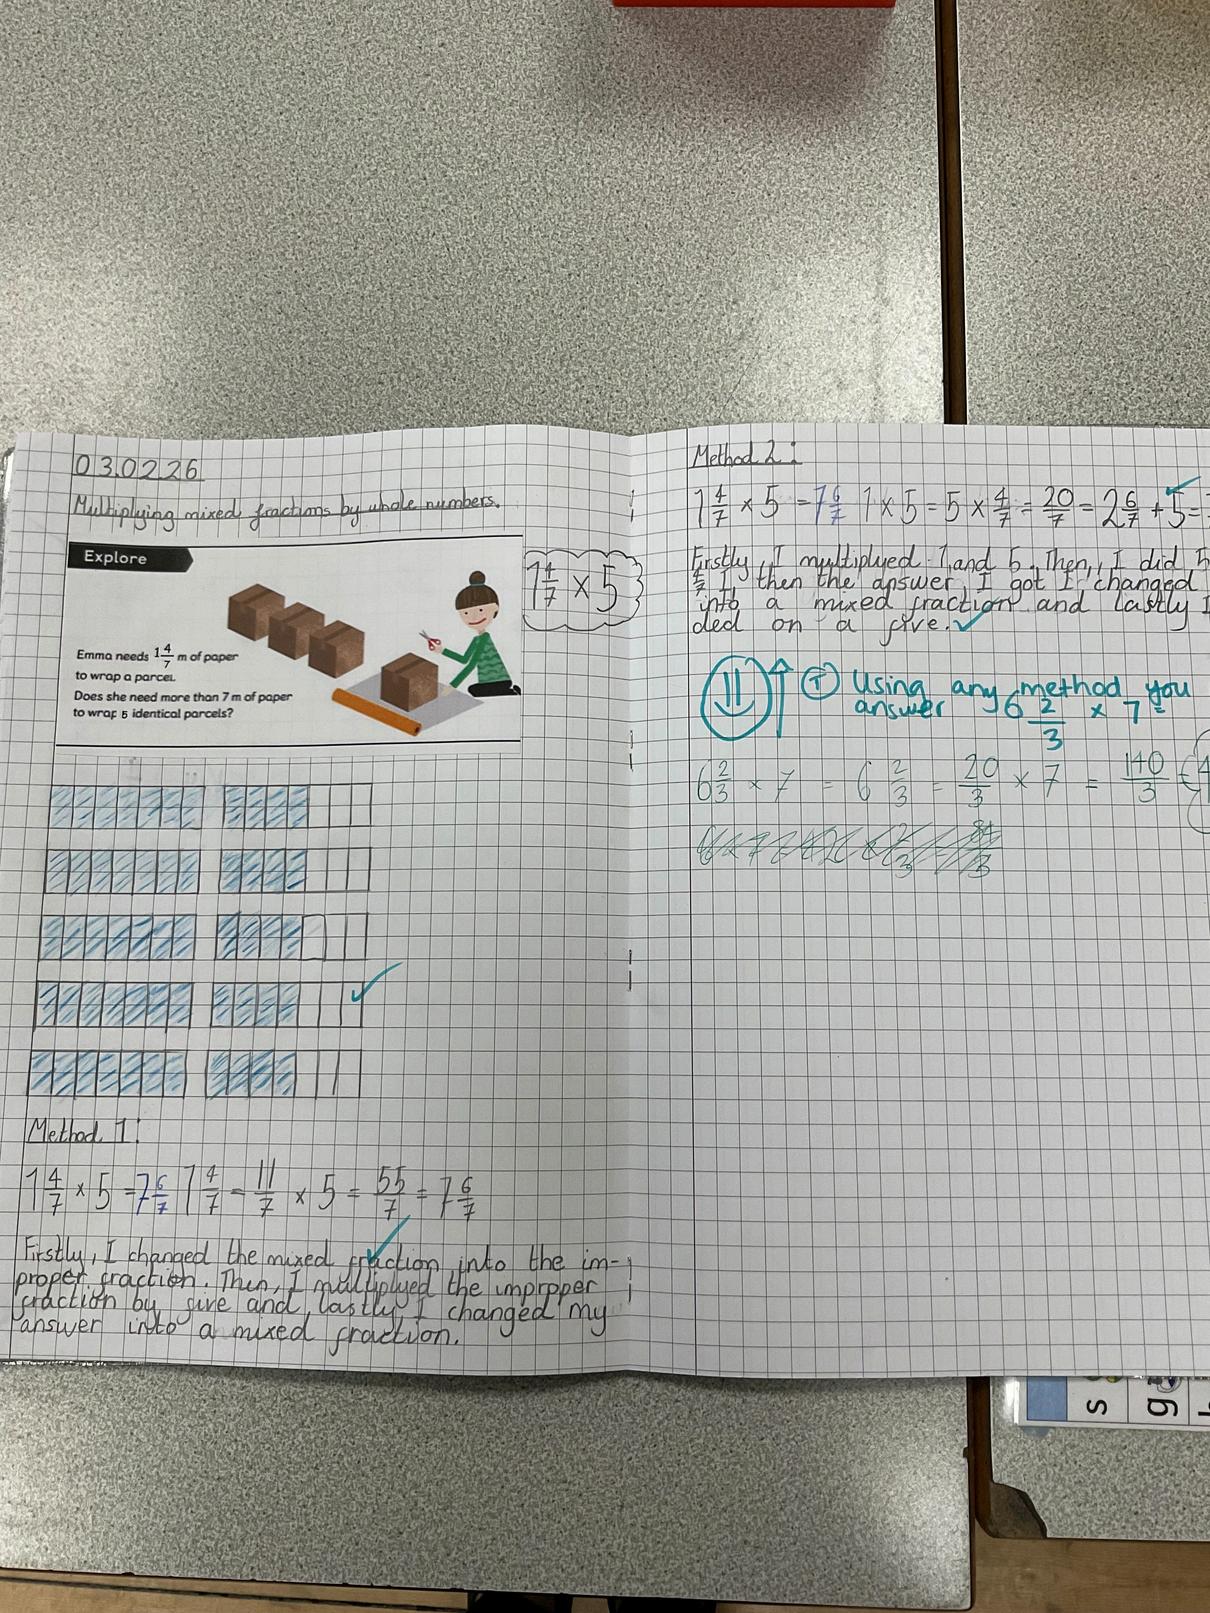 03.02.26
Multiplying mixed fractions by whole numbers.
Explore
Emma needs 1 4/7 m of paper
to wrap a parcel.
Does she need more than 7 m of paper
to wrap 5 identical parcels?
1 4/7 × 5
Method 1:
1 4/7 × 5 = 7 6/7 1 4/7 = 11/7 × 5 = 55/7 = 7 6/7
Firstly, I changed the mixed fraction into the im-
proper fraction. Then, I multiplyed the impropper
fraction by five and lastly I changed my
answer into a mixed fraction.
Method 2:
1 4/7 × 5 = 7 6/7 1 × 5 = 5 × 4/7 = 20/7 = 2 6/7 + 5 =
Firstly, I multiplyed 1 and 5. Then, I did 5
4/7 I then the answer I got I changed
into a mixed fraction and lastly I
ded on a five.
T Using any method you
answer 6 2/3 × 7 =
6 2/3 × 7 = 6 2/3 = 20/3 × 7 = 140/3 =
s
g